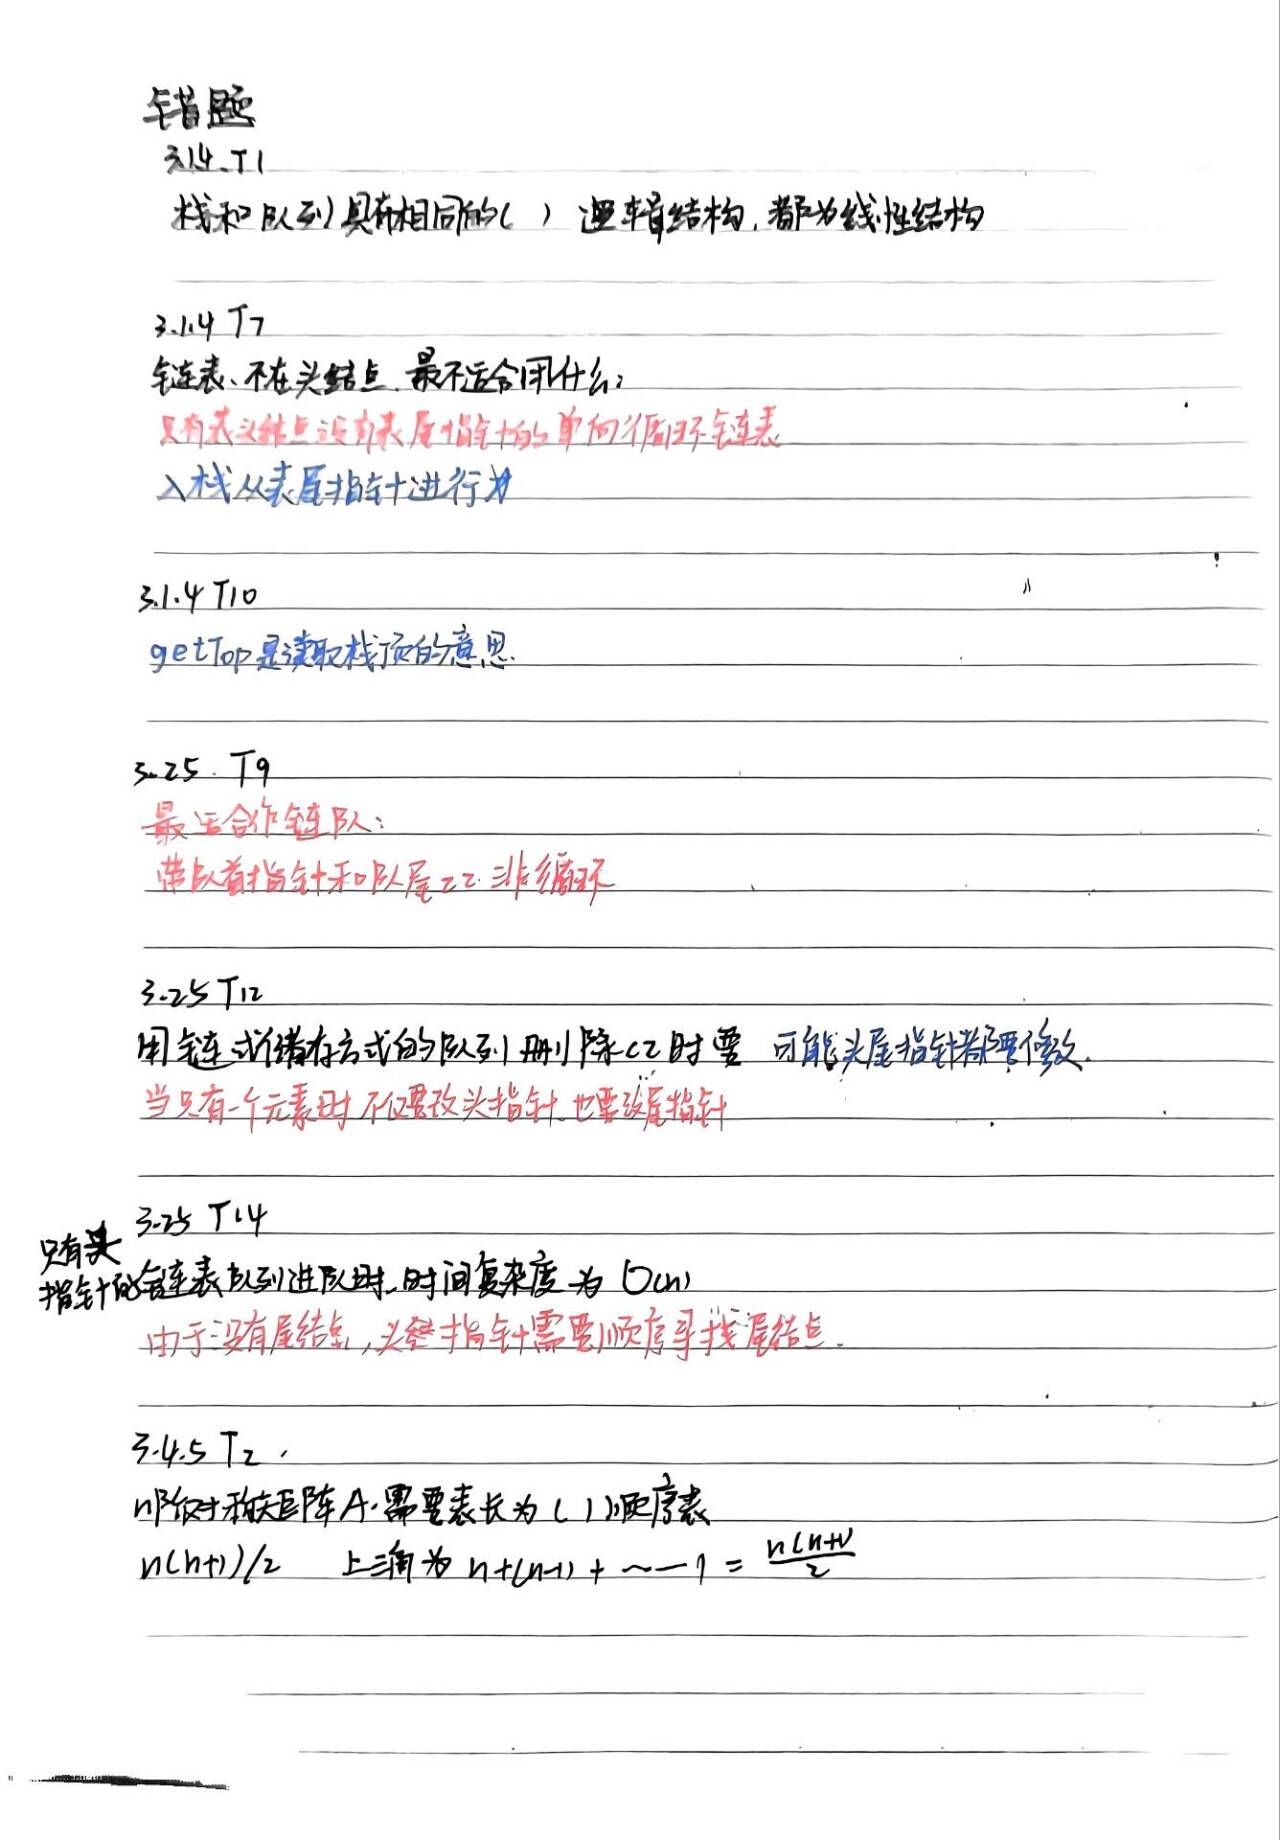 错题
3.1.4 T1
栈和队列具有相同的( ) 逻辑结构,都为线性结构
3.1.4 T7
链表、不在头结点、最不适合用什么:
只有表头结点没有表尾指针的单向循环链表
入栈从表尾指针进行
3.1.4 T10
getTop是读取栈顶的意思.
3.25. T9
最适合作链队:
带队首指针和队尾zz.非循环
3.25 T12
用链式储存方式的队列删除cz时要 可能头尾指针都要修改.
当只有一个元素时 不仅要改头指针.也要改尾指针
3.25 T14
只有头
指针的链表队列进队时、时间复杂度为 O(n)
由于没有尾结点,头指针需要顺序寻找尾结点.
3.4.5 T2.
n阶对称矩阵A.需要表长为( )顺序表
n(n+1)/2 上三角为 n+(n-1)+~—1 = n(n+1)/2